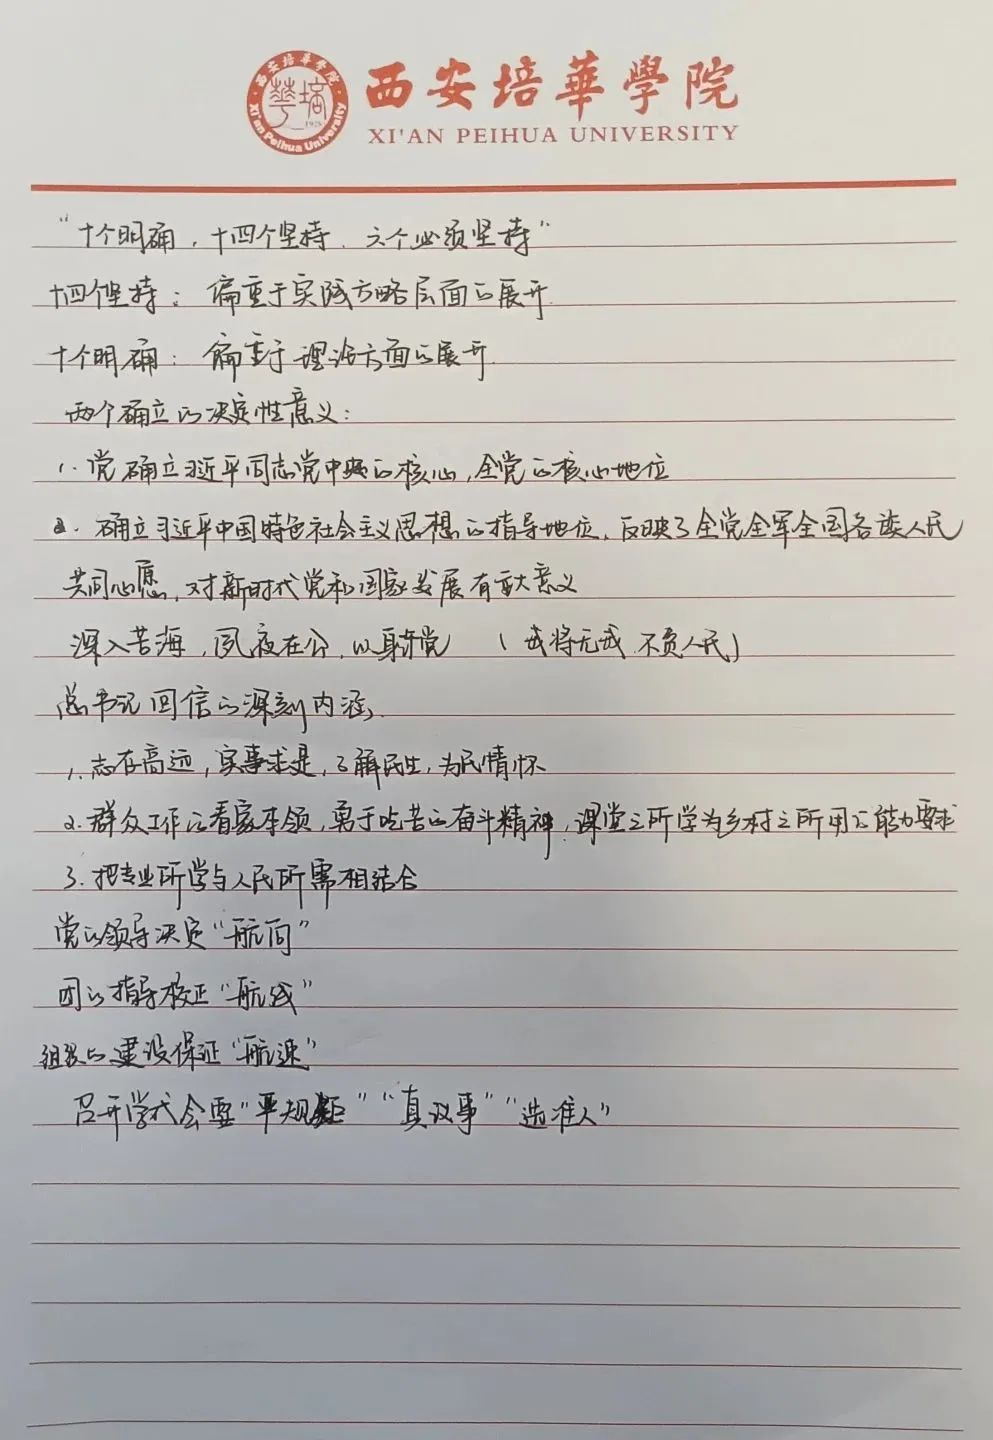 西安培華學院
XI'AN PEIHUA UNIVERSITY
西安培華學院
Xi'an Peihua University
1928
"十个明确,十四个坚持、六个必须坚持"
十四个坚持:偏重于实践方略层面的展开.
十个明确:偏重于理论方面的展开.
两个确立的决定性意义:
1.党确立习近平同志党中央的核心,全党的核心地位
2.确立习近平中国特色社会主义思想的指导地位,反映了全党全军全国各族人民
共同心愿,对新时代党和国家发展有重大意义
深入苦海,夙夜在公,以身许党 (我将无我 不负人民)
总书记回信的深刻内涵
1.志在高远,实事求是,了解民生,为民情怀
2.群众工作的看家本领,勇于吃苦的奋斗精神,课堂之所学为乡村之所用的能力要求
3.把专业所学与人民所需相结合
党的领导决定"航向"
团的指导校正"航线"
组织的建设保证"航速"
召开学代会要"严规矩" "真议事" "选准人"